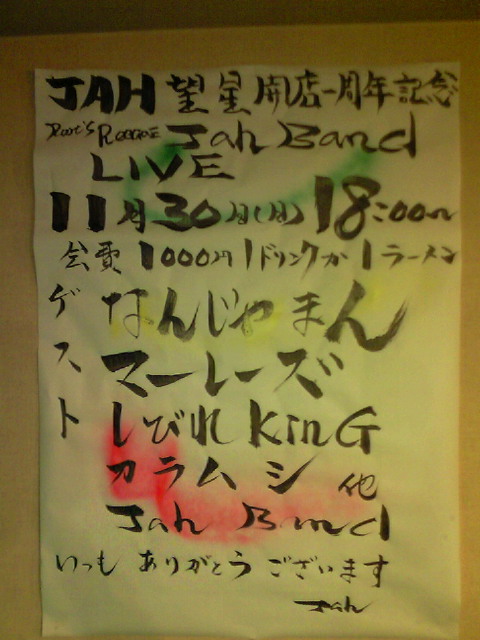 JAH 望星 開店一周年記念
Root's Reggae Jah Band
LIVE
11月30日(日) 18:00〜
会費 1000円 1ドリンクか1ラーメン
ゲスト
なんじゃまん
マーレーズ
しびれ KinG
カラムシ 他
Jah Band
いつも ありがとう ございます
Jah